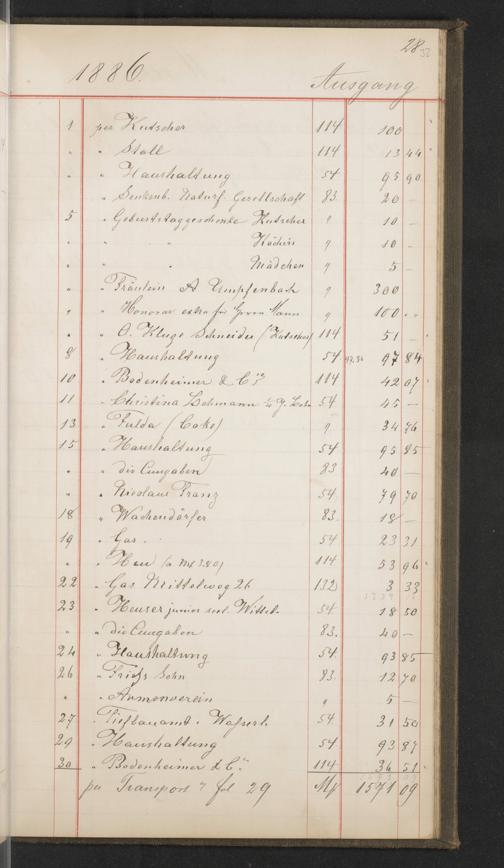 28
32
1886. Ausgang
1 per Kutscher 114 100
" " Stall 114 13 44
" " Haushaltung 54 95 90
" " Senkenb. Naturf. Gesellschaft 83 20 –
5 " Geburtstaggeschenke Kutscher " 10 –
" " " Köchin " 10 –
" " " Mädchen " 5 –
" " Fräulein A Umpfenbach " 300
" " Honorar extra für Herrn Mann " 100
" " O. Kluge Schneider (Kutscher) 114 51 –
8 " Haushaltung 54 97 84
10 " Bodenheimer & Cie 114 42 07
11 " Christina Lehmann 54 45 –
13 " Fulda (Coks) " 34 76
15 " Haushaltung 54 95 85
" " div Ausgaben 83 40 –
" " Nicolaus Franz 54 79 70
18 " Wachendörfer 83. 18 –
19 " Gas 54 23 31
" " Heu 114 53 96
22 " Gas Mittelweg 26 132 3 33
23 " Heuser junior seel. Wittib. 54 18 50
" " div Ausgaben 83. 40 –
24 " Haushaltung 54 93 85
26 " Sohn 83. 12 70
" " Armenverein " 5 –
27 " Tiefbauamt. Wasserl. 54 31 50
29 " Haushaltung 54 93 87
30 " Bodenheimer & Co 114 36 51
per Transport fol 29 Mk 1571 09